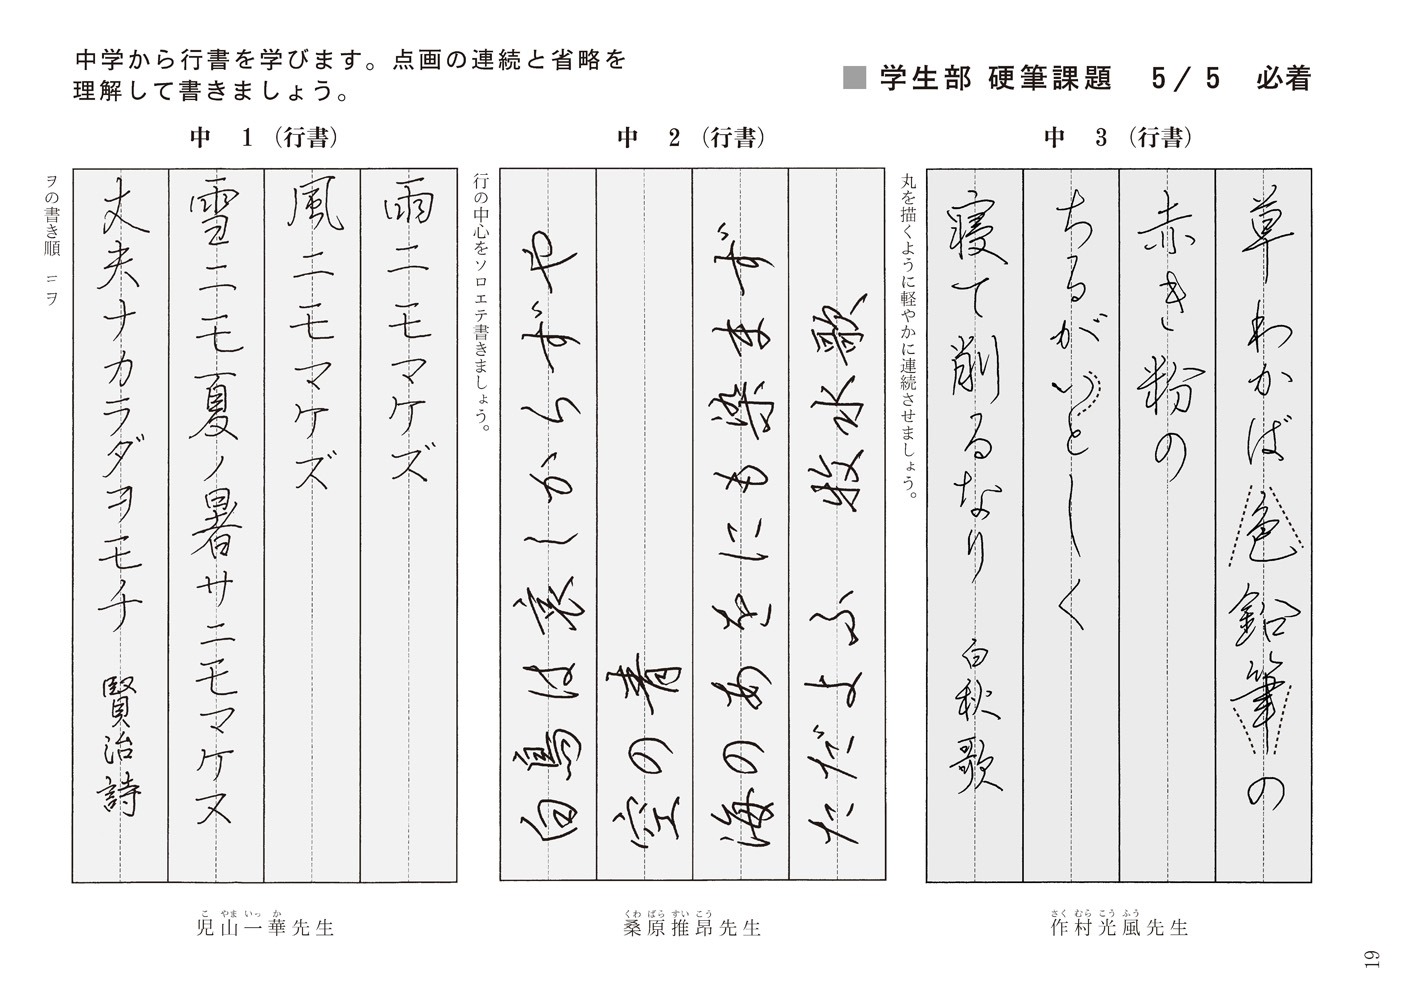 中学から行書を学びます。点画の連続と省略を
理解して書きましょう。
■学生部 硬筆課題 5/5 必着
中 1（行書）
雨ニモマケズ
風ニモマケズ
雪ニモ夏ノ暑サニモマケヌ
丈夫ナカラダヲモチ 賢治詩
ヲの書き順 ニ ヲ
児山一華先生
こ やま いっ か
中 2（行書）
白鳥は哀しからずや
空の青
海のあをにも染まず
ただよふ 牧水歌
行の中心をソロエテ書きましょう。
桑原推昂先生
くわ ばら すい こう
中 3（行書）
草わかば色鉛筆の
赤き粉の
ちるがいとしく
寝て削るなり 白秋歌
丸を描くように軽やかに連続させましょう。
作村光風先生
さく むら こう ふう
19